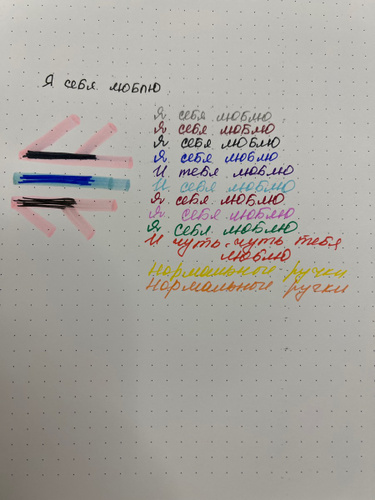 Я себя люблю
Я себя люблю
Я себя люблю
Я себя люблю
Я себя люблю
И тебя люблю
Я себя люблю
Я себя люблю
Я себя люблю
Я себя люблю
И чуть-чуть тебя
люблю
Нормальной ручки
Нормальной ручки